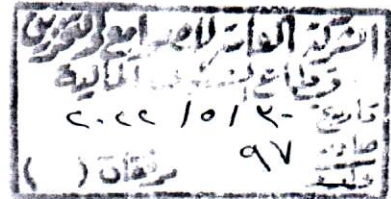 الشركة العامة للصوامع والتخزين
قطاع الشئون المالية
تاريخ ٢٠٢٢/٥/٣٠
صادر ٩٧
مرفقات ( )